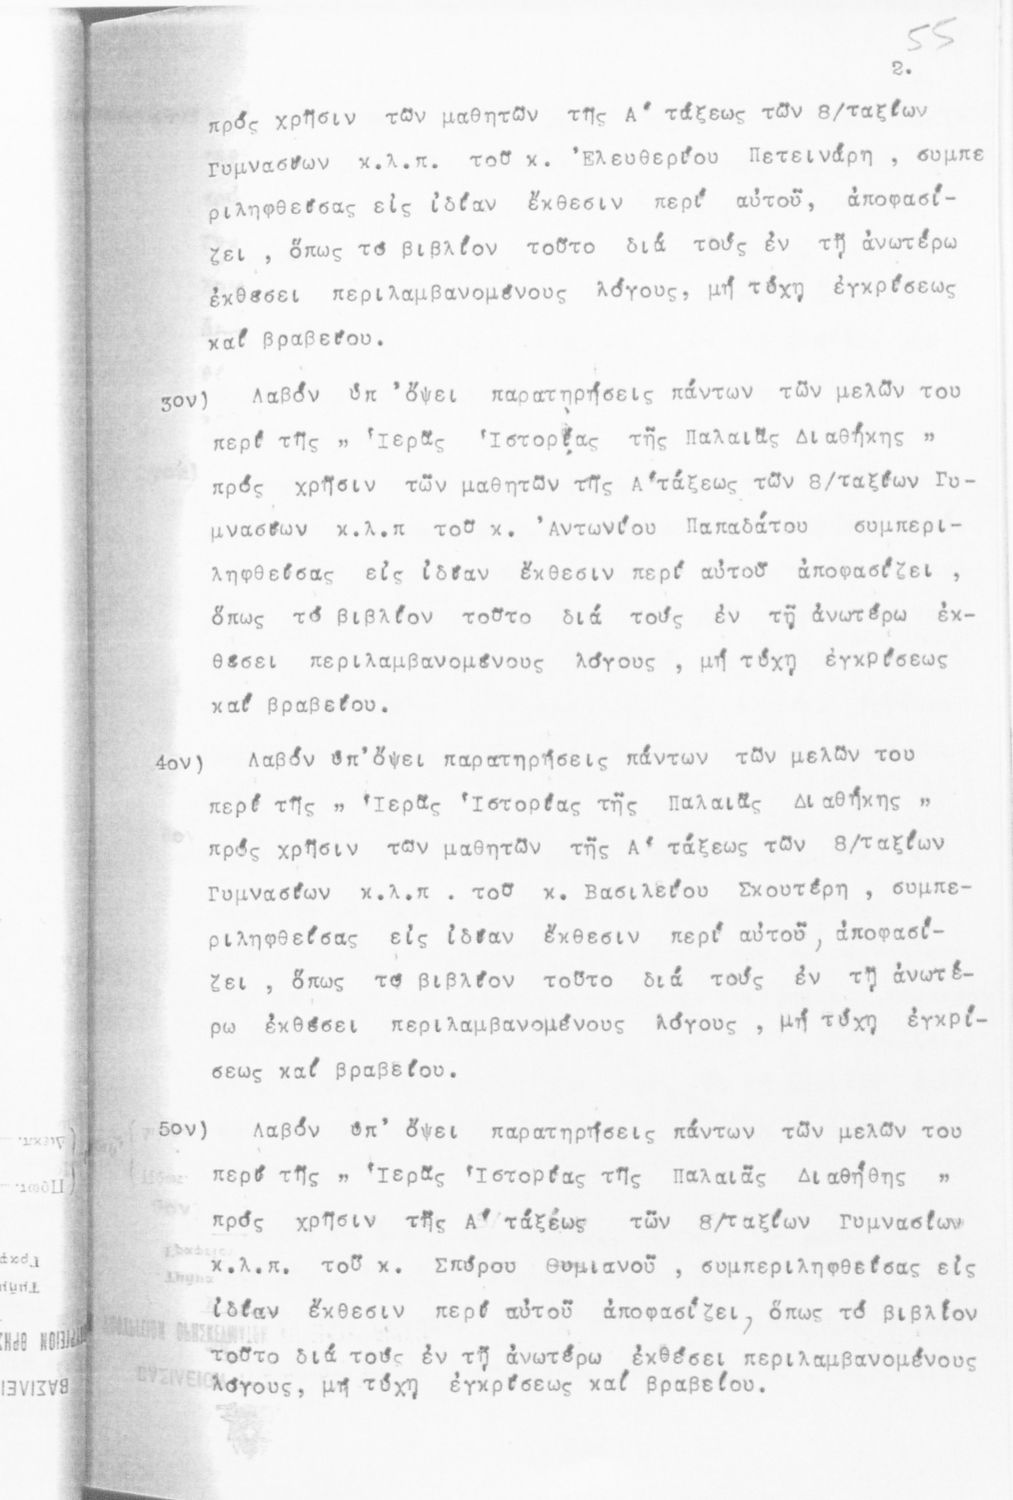 55
2.
πρός χρῆσιν τῶν μαθητῶν τῆς Α' τάξεως τῶν 8/ταξίων
Γυμνασίων κ.λ.π. τοῦ κ. Ἐλευθερίου Πετεινάρη , συμπε
ριληφθείσας εἰς ἰδίαν ἔκθεσιν περί αὐτοῦ, ἀποφασί-
ζει , ὅπως τό βιβλίον τοῦτο διά τούς ἐν τῇ ἀνωτέρω
ἐκθέσει περιλαμβανομένους λόγους, μή τύχη ἐγκρίσεως
καί βραβείου.
3ον) Λαβόν ὑπ 'ὄψει παρατηρήσεις πάντων τῶν μελῶν του
περί τῆς " Ἱερᾶς Ἱστορίας τῆς Παλαιᾶς Διαθήκης "
πρός χρῆσιν τῶν μαθητῶν τῆς Α'τάξεως τῶν 8/ταξίων Γυ-
μνασίων κ.λ.π τοῦ κ. Ἀντωνίου Παπαδάτου συμπερι-
ληφθείσας εἰς ἰδίαν ἔκθεσιν περί αὐτοῦ ἀποφασίζει ,
ὅπως τό βιβλίον τοῦτο διά τούς ἐν τῇ ἀνωτέρω ἐκ-
θέσει περιλαμβανομένους λόγους , μή τύχη ἐγκρίσεως
καί βραβείου.
4ον) Λαβόν ὑπ'ὄψει παρατηρήσεις πάντων τῶν μελῶν του
περί τῆς " Ἱερᾶς Ἱστορίας τῆς Παλαιᾶς Διαθήκης "
πρός χρῆσιν τῶν μαθητῶν τῆς Α' τάξεως τῶν 8/ταξίων
Γυμνασίων κ.λ.π . τοῦ κ. Βασιλείου Σκουτέρη , συμπε-
ριληφθείσας εἰς ἰδίαν ἔκθεσιν περί αὐτοῦ, ἀποφασί-
ζει , ὅπως τό βιβλίον τοῦτο διά τούς ἐν τῇ ἀνωτέ-
ρω ἐκθέσει περιλαμβανομένους λόγους , μή τύχη ἐγκρί-
σεως καί βραβείου.
5ον) Λαβόν ὑπ' ὄψει παρατηρήσεις πάντων τῶν μελῶν του
περί τῆς " Ἱερᾶς Ἱστορίας τῆς Παλαιᾶς Διαθήθης "
πρός χρῆσιν τῆς Α' τάξέως τῶν 8/ταξίων Γυμνασίων
κ.λ.π. τοῦ κ. Σπύρου Θυμιανοῦ , συμπεριληφθείσας εἰς
ἰδίαν ἔκθεσιν περί αὐτοῦ ἀποφασίζει, ὅπως τό βιβλίον
τοῦτο διά τούς ἐν τῇ ἀνωτέρω ἐκθέσει περιλαμβανομένους
λόγους, μή τύχη ἐγκρίσεως καί βραβείου.